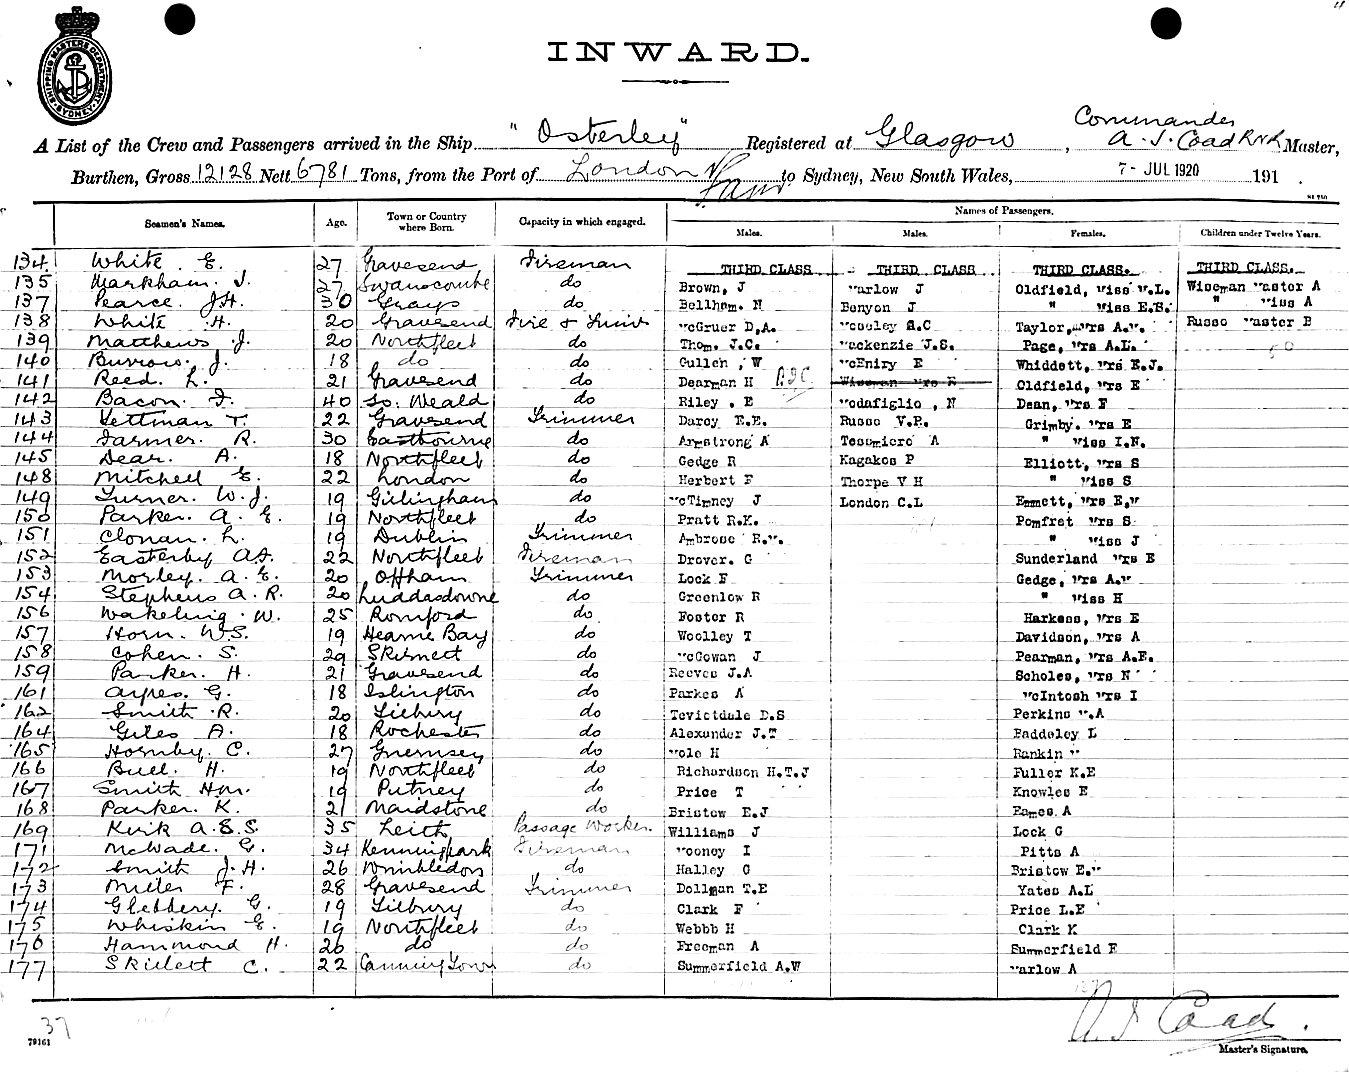 SHIPPING MASTERS DEPARTMENT SYDNEY
INWARD.
Commander
A List of the Crew and Passengers arrived in the Ship "Osterley" Registered at Glasgow, A. J. Coad RNR Master,
Burthen, Gross 12128 Nett 6781 Tons, from the Port of London to Sydney, New South Wales, 7- JUL 1920 191 .
Names of Passengers.
Seamen's Names. Age. Town or Country where Born. Capacity in which engaged. Males. Males. Females. Children under Twelve Years.
134 White E. 27 Gravesend Fireman THIRD CLASS THIRD CLASS THIRD CLASS. THIRD CLASS.
135 Markham. J. 27 Swanscombe do Brown, J Marlow J Oldfield, Miss M.L. Wiseman Master A
137 Pearce. J.H. 30 Grays do Bellhom. N Benyon J " Miss E.S. " Miss A
138 White .H. 20 Gravesend Fire & Trim McGruer D.A. Mcoley S.C Taylor, Mrs A.M. Russo Master B
139 Matthews .J. 20 Northfleet do Thom. J.C. Mackenzie J.S. Page, Mrs A.L.
140 Burrow. J. 18 do do Gullen, W McEniry E Whiddett, Mrs E.J.
141 Reed. L. 21 Gravesend do Dearman H Wiseman Mrs E Oldfield, Mrs E
142 Bacon. F. 40 So. Weald do Riley, E Modafiglio, N Dean, Mrs F
143 Yettman T. 22 Gravesend Trimmer Darcy E.E. Russo V.P. Grimby. Mrs E
144 Farmer. R. 30 Eastbourne do Armstrong A Tesomicro A " Miss I.N.
145 Dear. A. 18 Northfleet do Gedge R Kagakos P Elliott, Mrs S
148 Mitchell E. 22 London do Herbert F Thorpe V H " Miss S
149 Turner. W.J. 19 Gillingham do McTimney J London C.L Emmett, Mrs E.M
150 Parker. A. E. 19 Northfleet do Pratt R.K. Pomfret Mrs S
151 Clonan. L. 19 Dublin Trimmer Ambrose R.M. " Miss J
152 Easterby A.J. 22 Northfleet Fireman Drover. G Sunderland Mrs E
153 Morley. A. E. 20 Offham Trimmer Lock F Gedge, Mrs A.M
154 Stephens A. R. 20 Luddesdowne do Greenlow R " Miss H
156 Wakeling. W. 25 Romford do Foster R Harkess, Mrs E
157 Horn. W.S. 19 Hearne Bay do Woolley T Davidson, Mrs A
158 Cohen. S. 29 Skirmett do McGowan J Pearman, Mrs A.E.
159 Parker. H. 21 Gravesend do Reeves J.A Scholes, Mrs N
161 Ayres. G. 18 Islington do Parkes A McIntosh Mrs I
162 Smith .R. 20 Tilbury do Tevictdale D.S Perkins M.A
164 Giles A. 18 Rochester do Alexander J.T Baddeley L
165 Hornby. C. 27 Guernsey do Mole H Rankin M
166 Bull. H. 19 Northfleet do Richardson H.T.J Fuller K.E
167 Smith Hm. 19 Putney do Price T Knowles E
168 Parker. K. 21 Maidstone do Bristow E.J Eames A
169 Kirk A.S.S. 35 Leith Passage Worker. Williams J Lock G
171 McWade. G. 34 Kennington Park Fireman Mooney I Pitts A
172 Smith J.H. 26 Wimbledon do Halley G Bristow E.M
173 Miller F. 28 Gravesend Trimmer Dollman T.E Yates A.L
174 Gleddery. G. 19 Tilbury do Clark F Price L.E
175 Whiskin E. 19 Northfleet do Webbb H Clark K
176 Hammond H. 20 do do Freeman A Summerfield E
177 Skillett C. 22 Canning Town do Summerfield A.W Marlow A
37
79161
A J Coad.
Master's Signature.